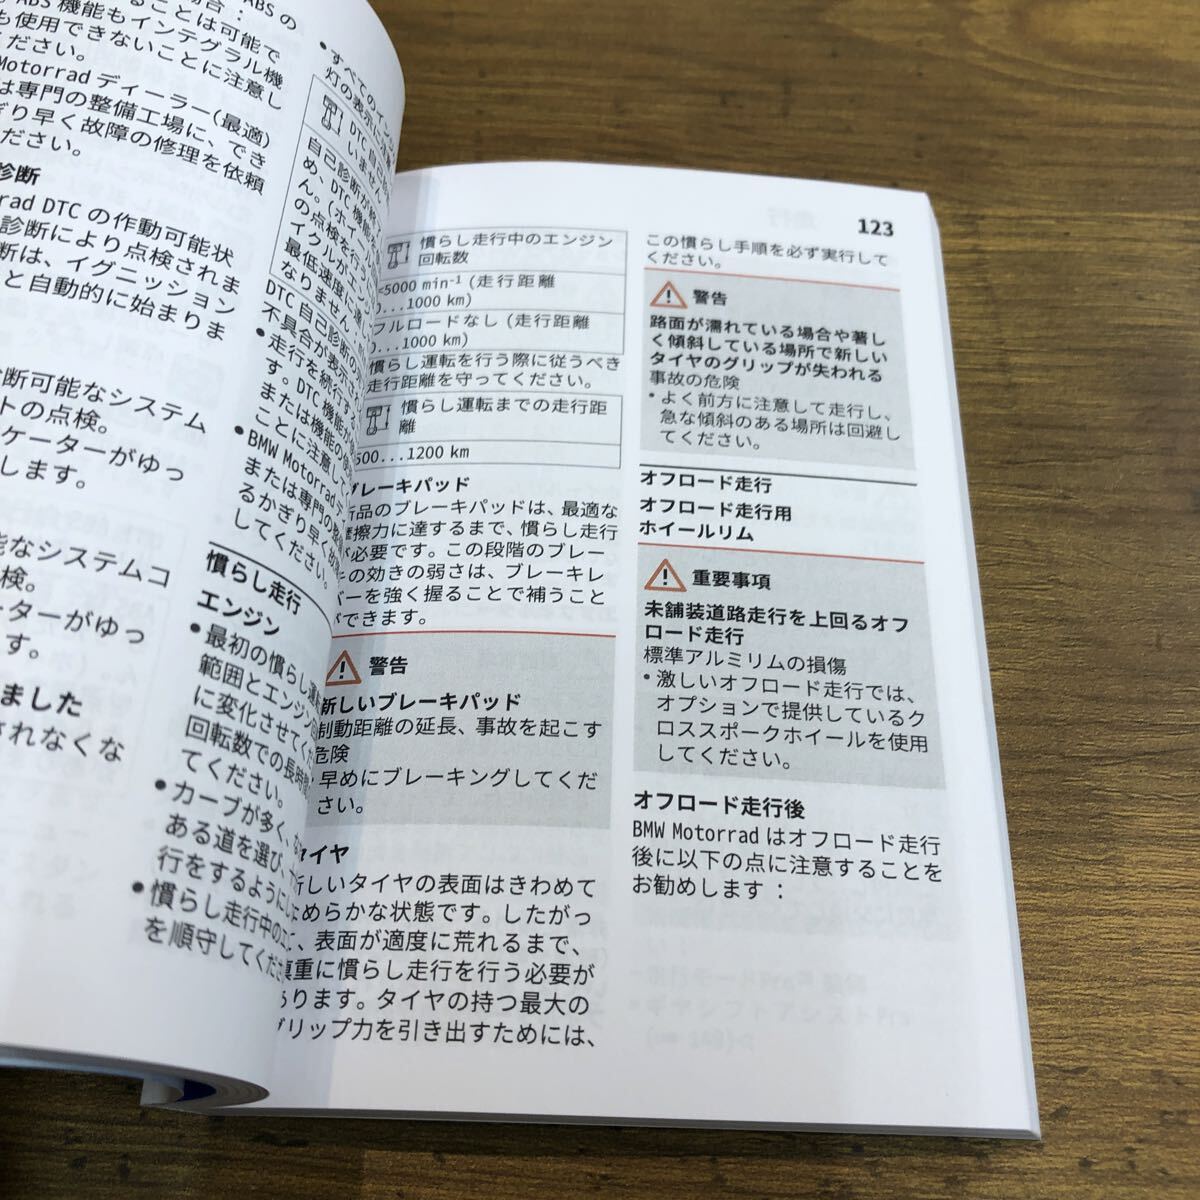 ABSの
ABS機能もインテグラル機
も使用できないことに注意し
ください。
Motorradディーラー(最適)
は専門の整備工場に、でき
ぎり早く故障の修理を依頼
ださい。
診断
rad DTCの作動可能状
診断により点検されま
断は、イグニッション
と自動的に始まりま
す。
断可能なシステム
トの点検。
ケーターがゆっ
します。
能なシステムコ
検。
ーターがゆっ
す。
ました
されなくな
•すべてのイン
灯の表示に
DTC自
いません
自己診断が
め、DTC機能
ん。(ホイー
の点検を行う
イクルがエン
最低速度に達し
なりません
DTC自己診断の
不具合が表示さ
•走行を続行す
す。DTC機能が
または機能の
ことに注意して
•BMW Motorrad
または専門の整
るかぎり早く故障
してください。
慣らし走行
エンジン
•最初の慣らし運
範囲とエンジン
に変化させてくだ
回転数での長時
てください。
•カーブが多く、な
ある道を選び、
行をするように
•慣らし走行中のエ
を順守してくださ
123
慣らし走行中のエンジン
回転数
<5000 min-1 (走行距離
0...1000 km)
フルロードなし (走行距離
0...1000 km)
慣らし運転を行う際に従うべき
走行距離を守ってください。
慣らし運転までの走行距
離
500...1200 km
ブレーキパッド
新品のブレーキパッドは、最適な
摩擦力に達するまで、慣らし走行
が必要です。この段階のブレー
キの効きの弱さは、ブレーキレ
バーを強く握ることで補うこと
ができます。
警告
新しいブレーキパッド
制動距離の延長、事故を起こす
危険
•早めにブレーキングしてくだ
さい。
タイヤ
新しいタイヤの表面はきわめて
なめらかな状態です。したがっ
て、表面が適度に荒れるまで、
慎重に慣らし走行を行う必要が
あります。タイヤの持つ最大の
グリップ力を引き出すためには、
この慣らし手順を必ず実行して
ください。
警告
路面が濡れている場合や著し
く傾斜している場所で新しい
タイヤのグリップが失われる
事故の危険
•よく前方に注意して走行し、
急な傾斜のある場所は回避し
てください。
オフロード走行
オフロード走行用
ホイールリム
重要事項
未舗装道路走行を上回るオフ
ロード走行
標準アルミリムの損傷
•激しいオフロード走行では、
オプションで提供しているク
ロススポークホイールを使用
してください。
オフロード走行後
BMW Motorradはオフロード走行
後に以下の点に注意することを
お勧めします：